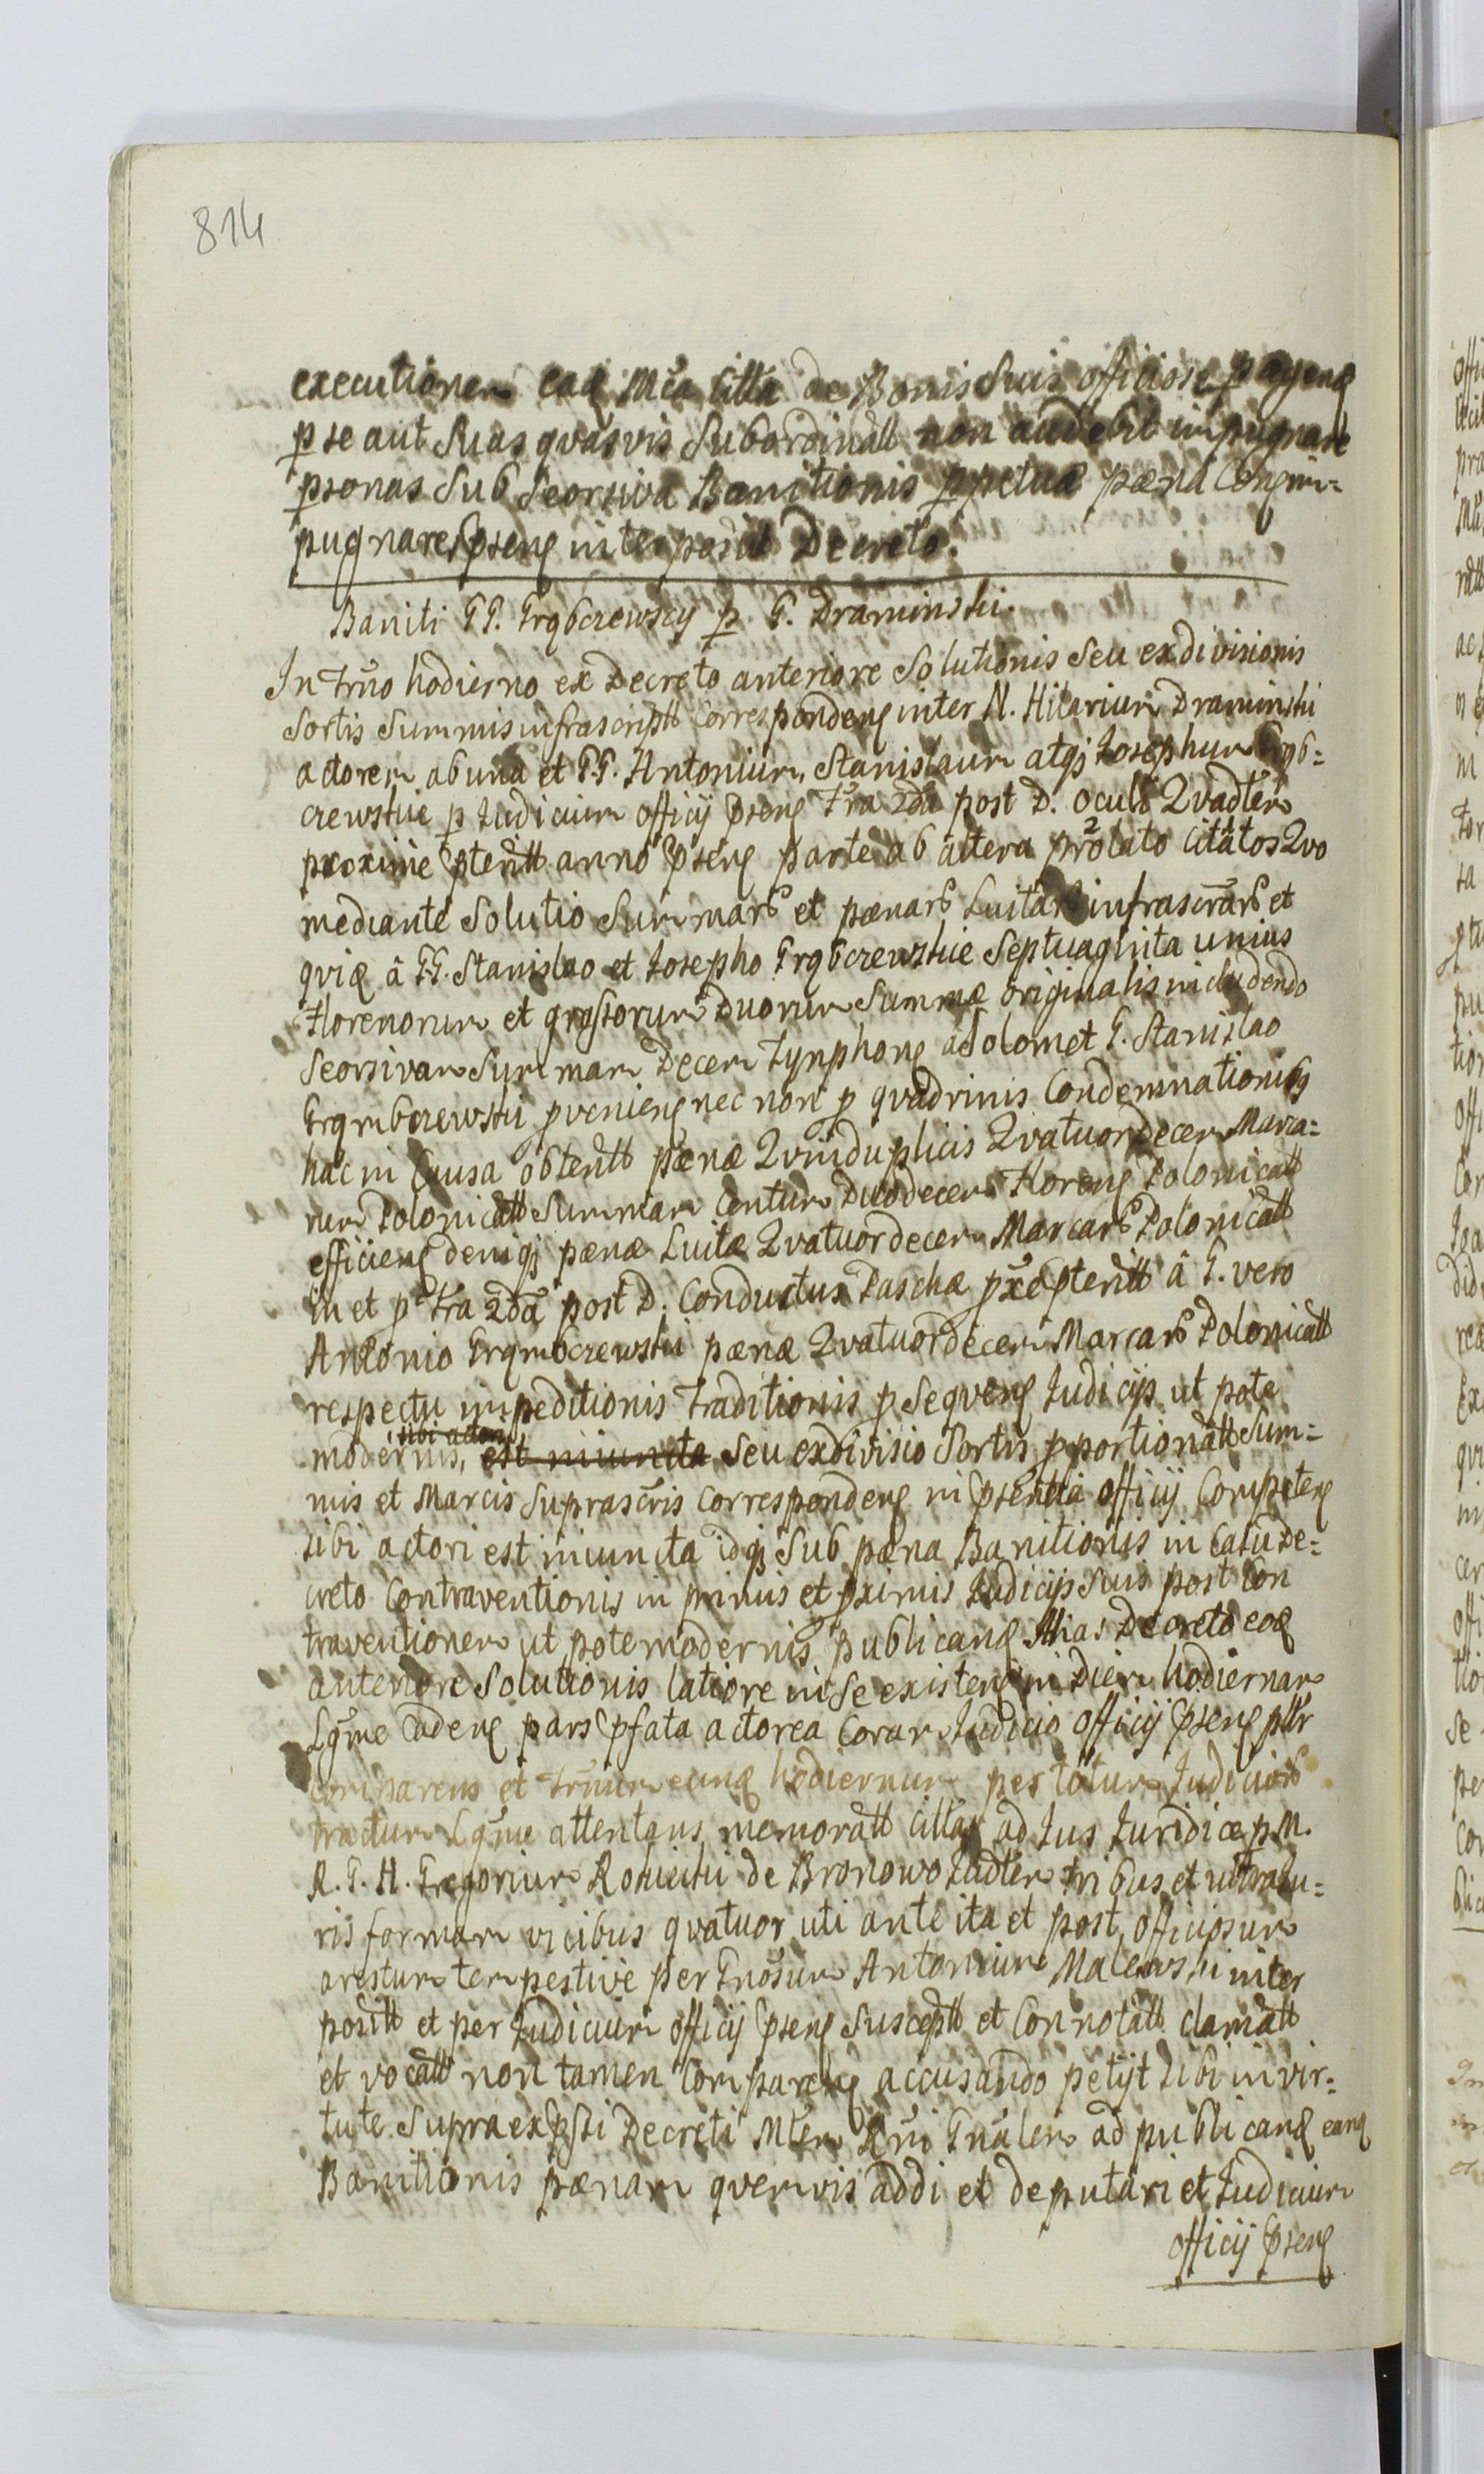 814
executionem eaq Mca citta de Bonis Suis officiose pagenq
p se aut Suas qvasvis Subordinatt non audebit impugnare
psonas Sub Seorsiva Banitionis ppetuæ pæna
pugnare pseng interposito Decreto.
Baniti GG. Grqbczewscy p G. Draminski.
In Trno hodierno ex Decreto anteriore Solutionis Seu exdivisionis
Sortis Summis infrascriptt Correspondeng inter N. Hilarium Draminski
actorem ab una et GG. Antonium, Stanislaum atq Josephum Grqb=
czewskie p Judicium officij pseng Fra 2da post D. Oculi Qvadler
proxime pteritt anno pseng parte ab altera prolato Citatos Qvo
mediante Solutio Summarb et pænarb Luitarb infrascrarb et
qviq â GG. Stanislao et Josepho Grqbczewskie Septuaginta unius
Florenorum et grossorum Duorum Summæ originalis includendo
Seorsivam Summam Decem Tynphong a Solomet G. Stanislao
Grqmbczewski pvenieng nec non p qvadrinis Condemnationibq
hac in Causa obtentt pænæ Qvinduplicis Qvatuordecem Marca=
rum Polonicatt Summam Centum Duodecem Floreng Polonicatt
efficieng deniqj pænæ Luitæ Qvatuordecem Marcarb Polonicatt
in et p Fra 2da post D. Conductus Paschæ pxe pteritt â G. vero
Antonio Grqmbczewski pænæ Qvatuordecem Marcarb Polonicatt
respectu impeditionis Traditionis p Seqveng Judicijs ut pote
sibi actori
modernis, est iniuncta Seu exdivisio Sortis pportionatt Sum=
mis et Marcis Suprascris Correspondeng in psentia officij Competeng
sibi actori est iniuncta idqj Sub pæna Banitionis in Casu De=
creto Contraventionis in primis et pximis Judicijs Suis post Con
traventionem ut pote modernis publicanq Alias Decreto eoq
anteriore Solutionis latiore in Se existeng in Diem hodiernam
Lqme Cadeng pars pfata actorea Coram Judicio officij pseng pltr
comparens et Trnum eunq hodiernum per totum Judiciorb
tractum Lqme attentans memoratt cittaq ad Jus Juridicæ p M.
R. G. H. Gregorium Rokicki de Bronowo Judler tribus et ultra Ju=
ris formam vicibus qvatuor uti ante ita et post officiosum
arestum tempestive per Gnosum Antonium Malewski inter
positt et per Judicium officij pseng Susceptt et Connotatt clamatt
et vocatt non tamen Compareng accusando petijt sibi in vir=
tute Supraexpsti Decreti Mlem Rni Gnalem ad publicanq eanq
Banitionis pænam qvemvis addi et deputari et Judicium
officij pseng